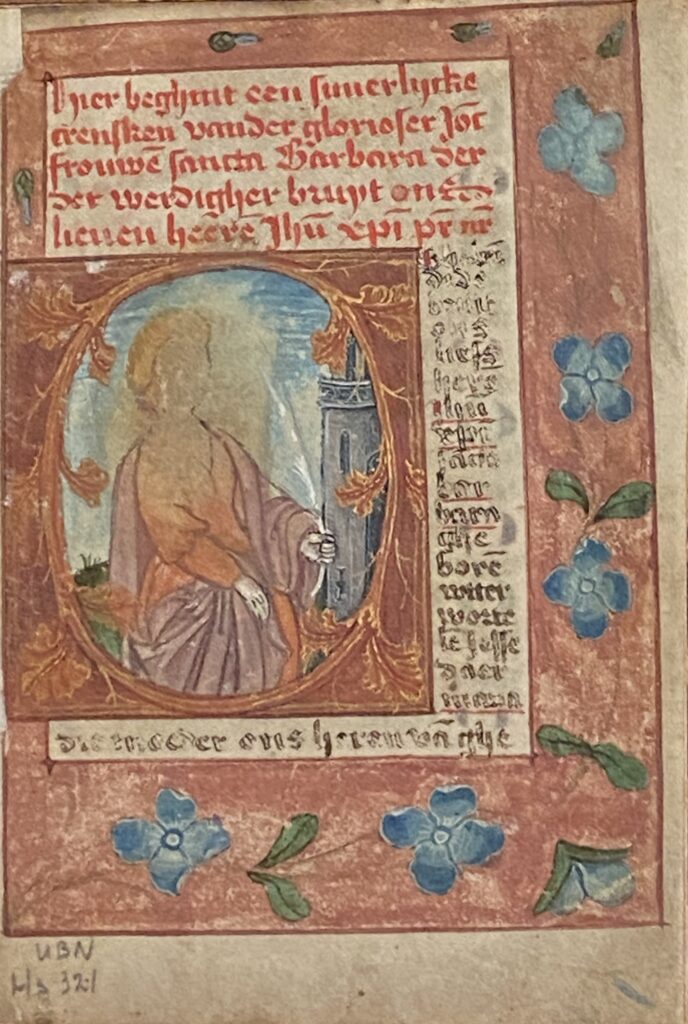 Hier beghint een suuerlycke
crensken vander glorioser Joc
frouwē sancta Barbara der
der werdigher bruyt
lieuen heerē Jhū xpi
ons
liefs
heys
Jhū
bar
ghe
borē
witer
worte
Jesse
daer
maria
die moeder ons heren vā ghe
UBN
Hs 321